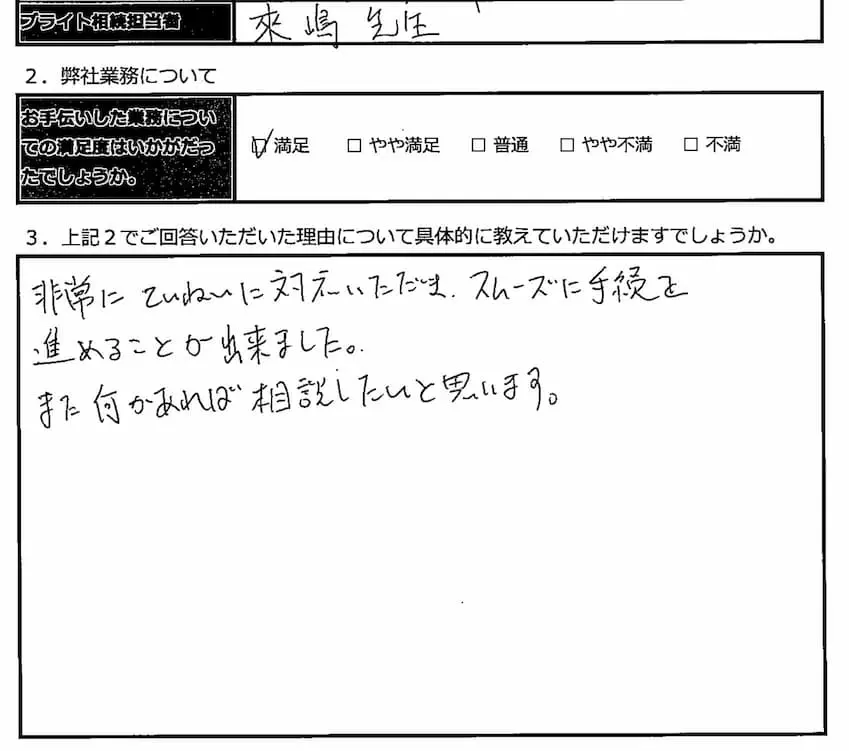 ブライト相続担当者
來嶋先生
2．弊社業務について
お手伝いした業務につい
ての満足度はいかがだっ
たでしょうか。
☑ 満足 □ やや満足 □ 普通 □ やや不満 □ 不満
3．上記2でご回答いただいた理由について具体的に教えていただけますでしょうか。
非常にていねいに対応いただき、スムーズに手続を
進めることが出来ました。
また何かあれば相談したいと思います。